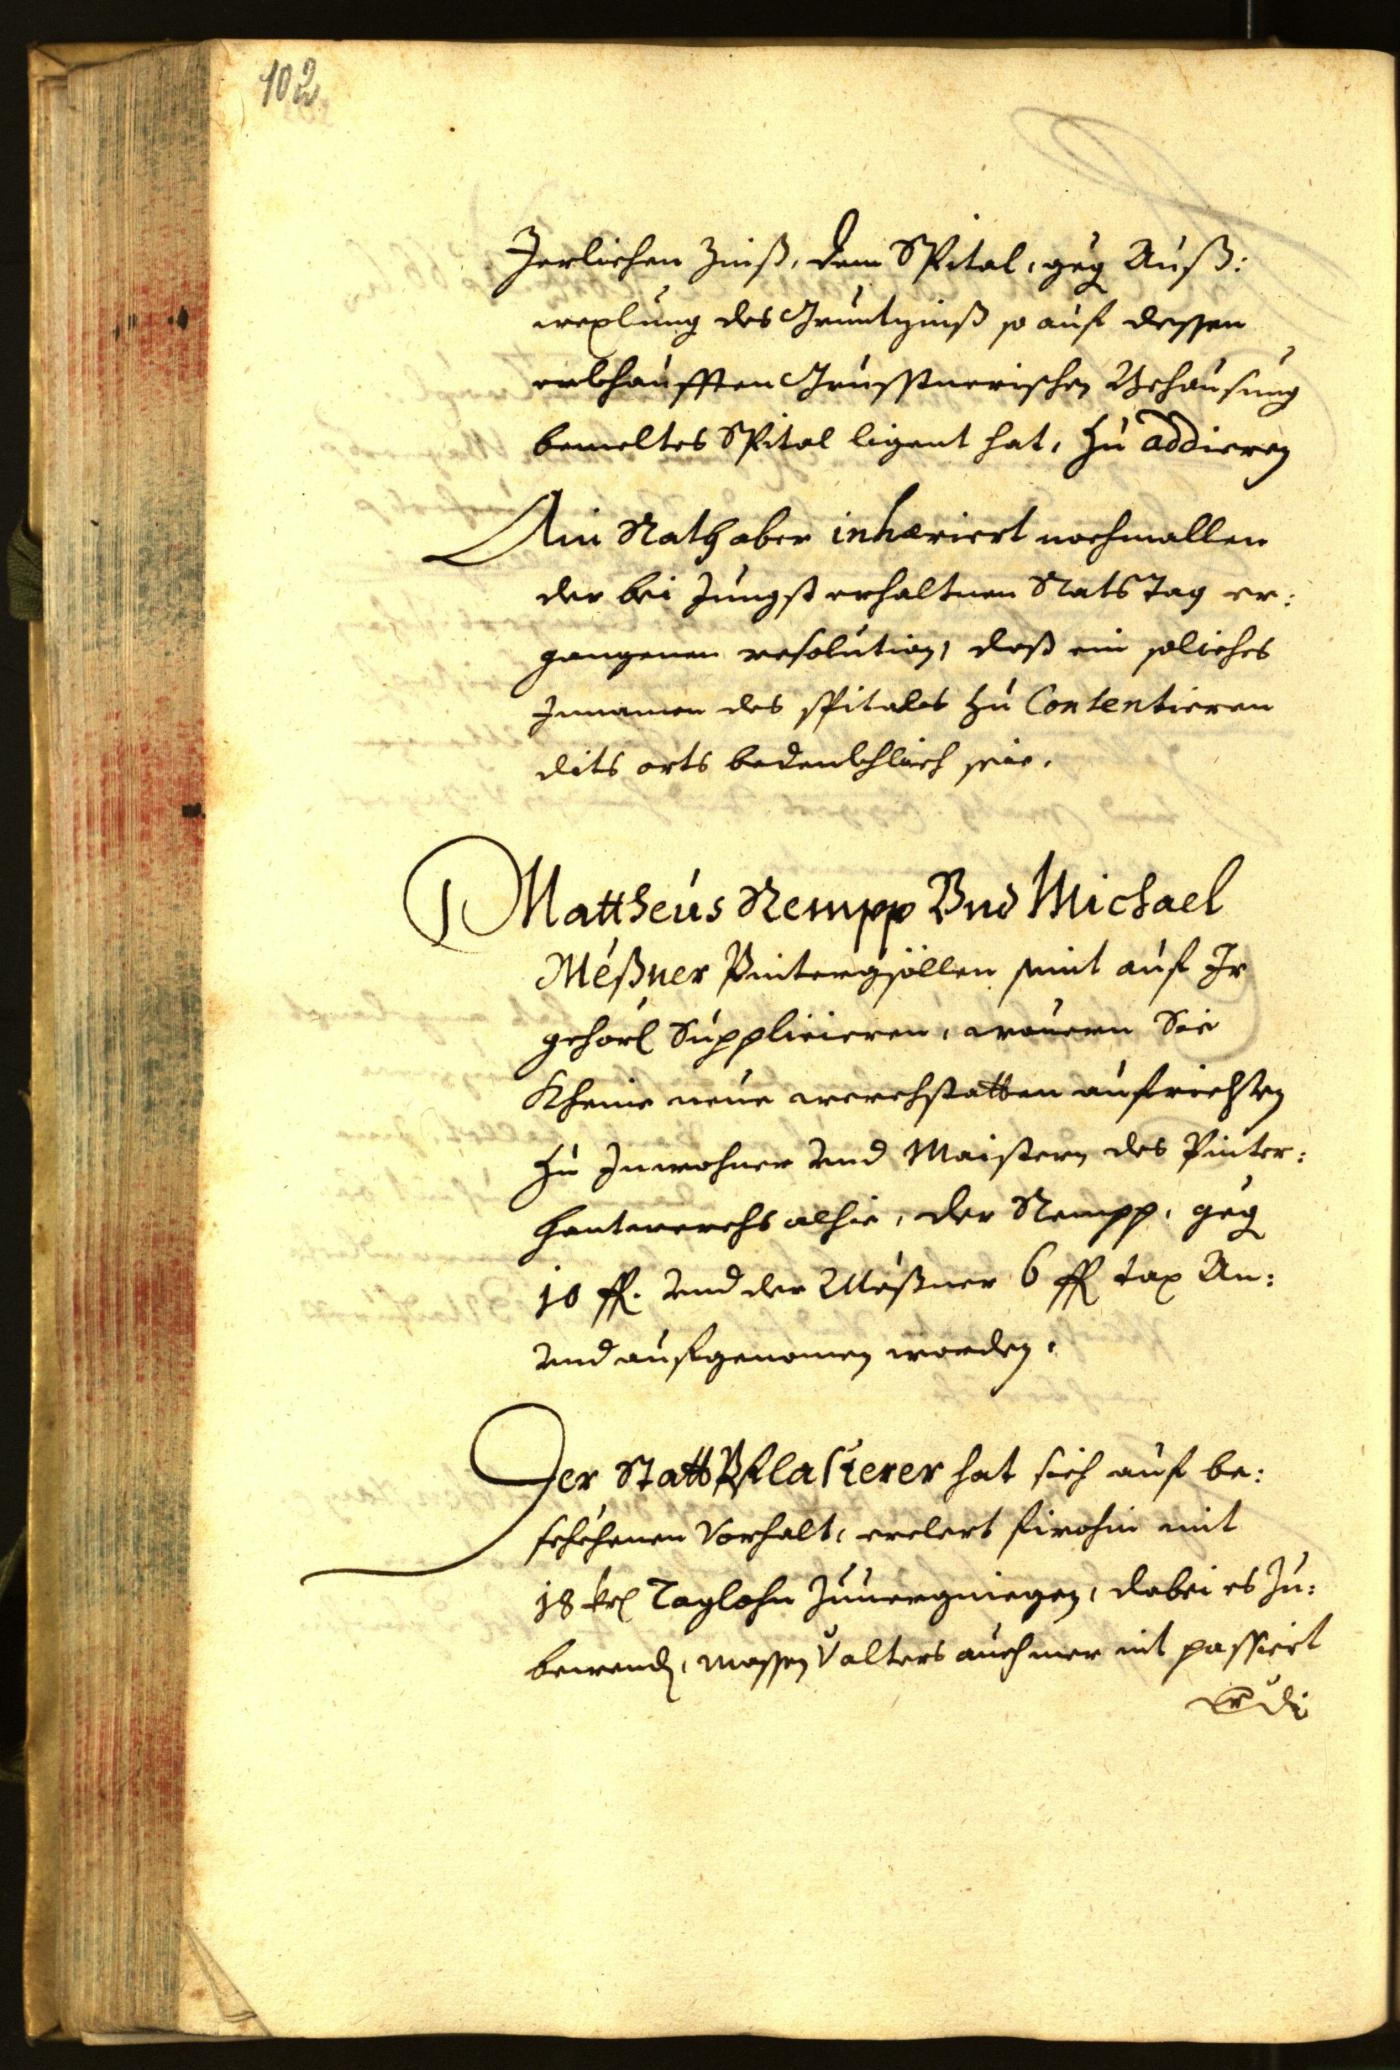 102
Jerlichen Zinß, dem Spital, geg Auß:
wexlung des Gruntzinß so auf dessen
erkhaufften Behausung
bemeltes Spital ligent hat, zu addieren
Ain Rath aber inhæriert nochmallen
der bei Jungst erhaltnen Rats Tag er:
gangenen resolution, daß ein soliches
Innamen des spitals zu Contentieren
dits orts bedenkhlich seie.
Mattheus Rempp Vnd Michael
Meßner Pintergsöllen sint auf Ir
gehorß Supplicieren, wouern Sie
Kheine neue werchstatten aufrichten
zu Inwohner vnd Maistern des Pinter:
hantwerchs alhie, der Rempp, geg
10 fl. vnd der Meßner 6 fl tax An:
vnd aufgenomen worden.
Der Statt Pflasterer hat sich auf be:
schehenen Vorhalt, erclert firohin mit
18 krl Taglohn zuuergniegen, dabei es zu:
bewenden, massen Valters auch mer nit passiert